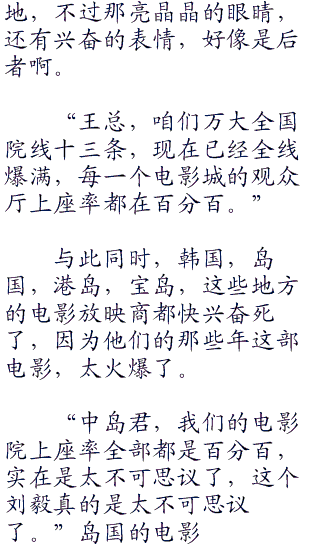 地，不过那亮晶晶的眼睛，
还有兴奋的表情，好像是后
者啊。
“王总，咱们万大全国
院线十三条，现在已经全线
爆满，每一个电影城的观众
厅上座率都在百分百。”
与此同时，韩国，岛
国，港岛，宝岛，这些地方
的电影放映商都快兴奋死
了，因为他们的那些年这部
电影，太火爆了。
“中岛君，我们的电影
院上座率全部都是百分百，
实在是太不可思议了，这个
刘毅真的是太不可思议
了。”岛国的电影